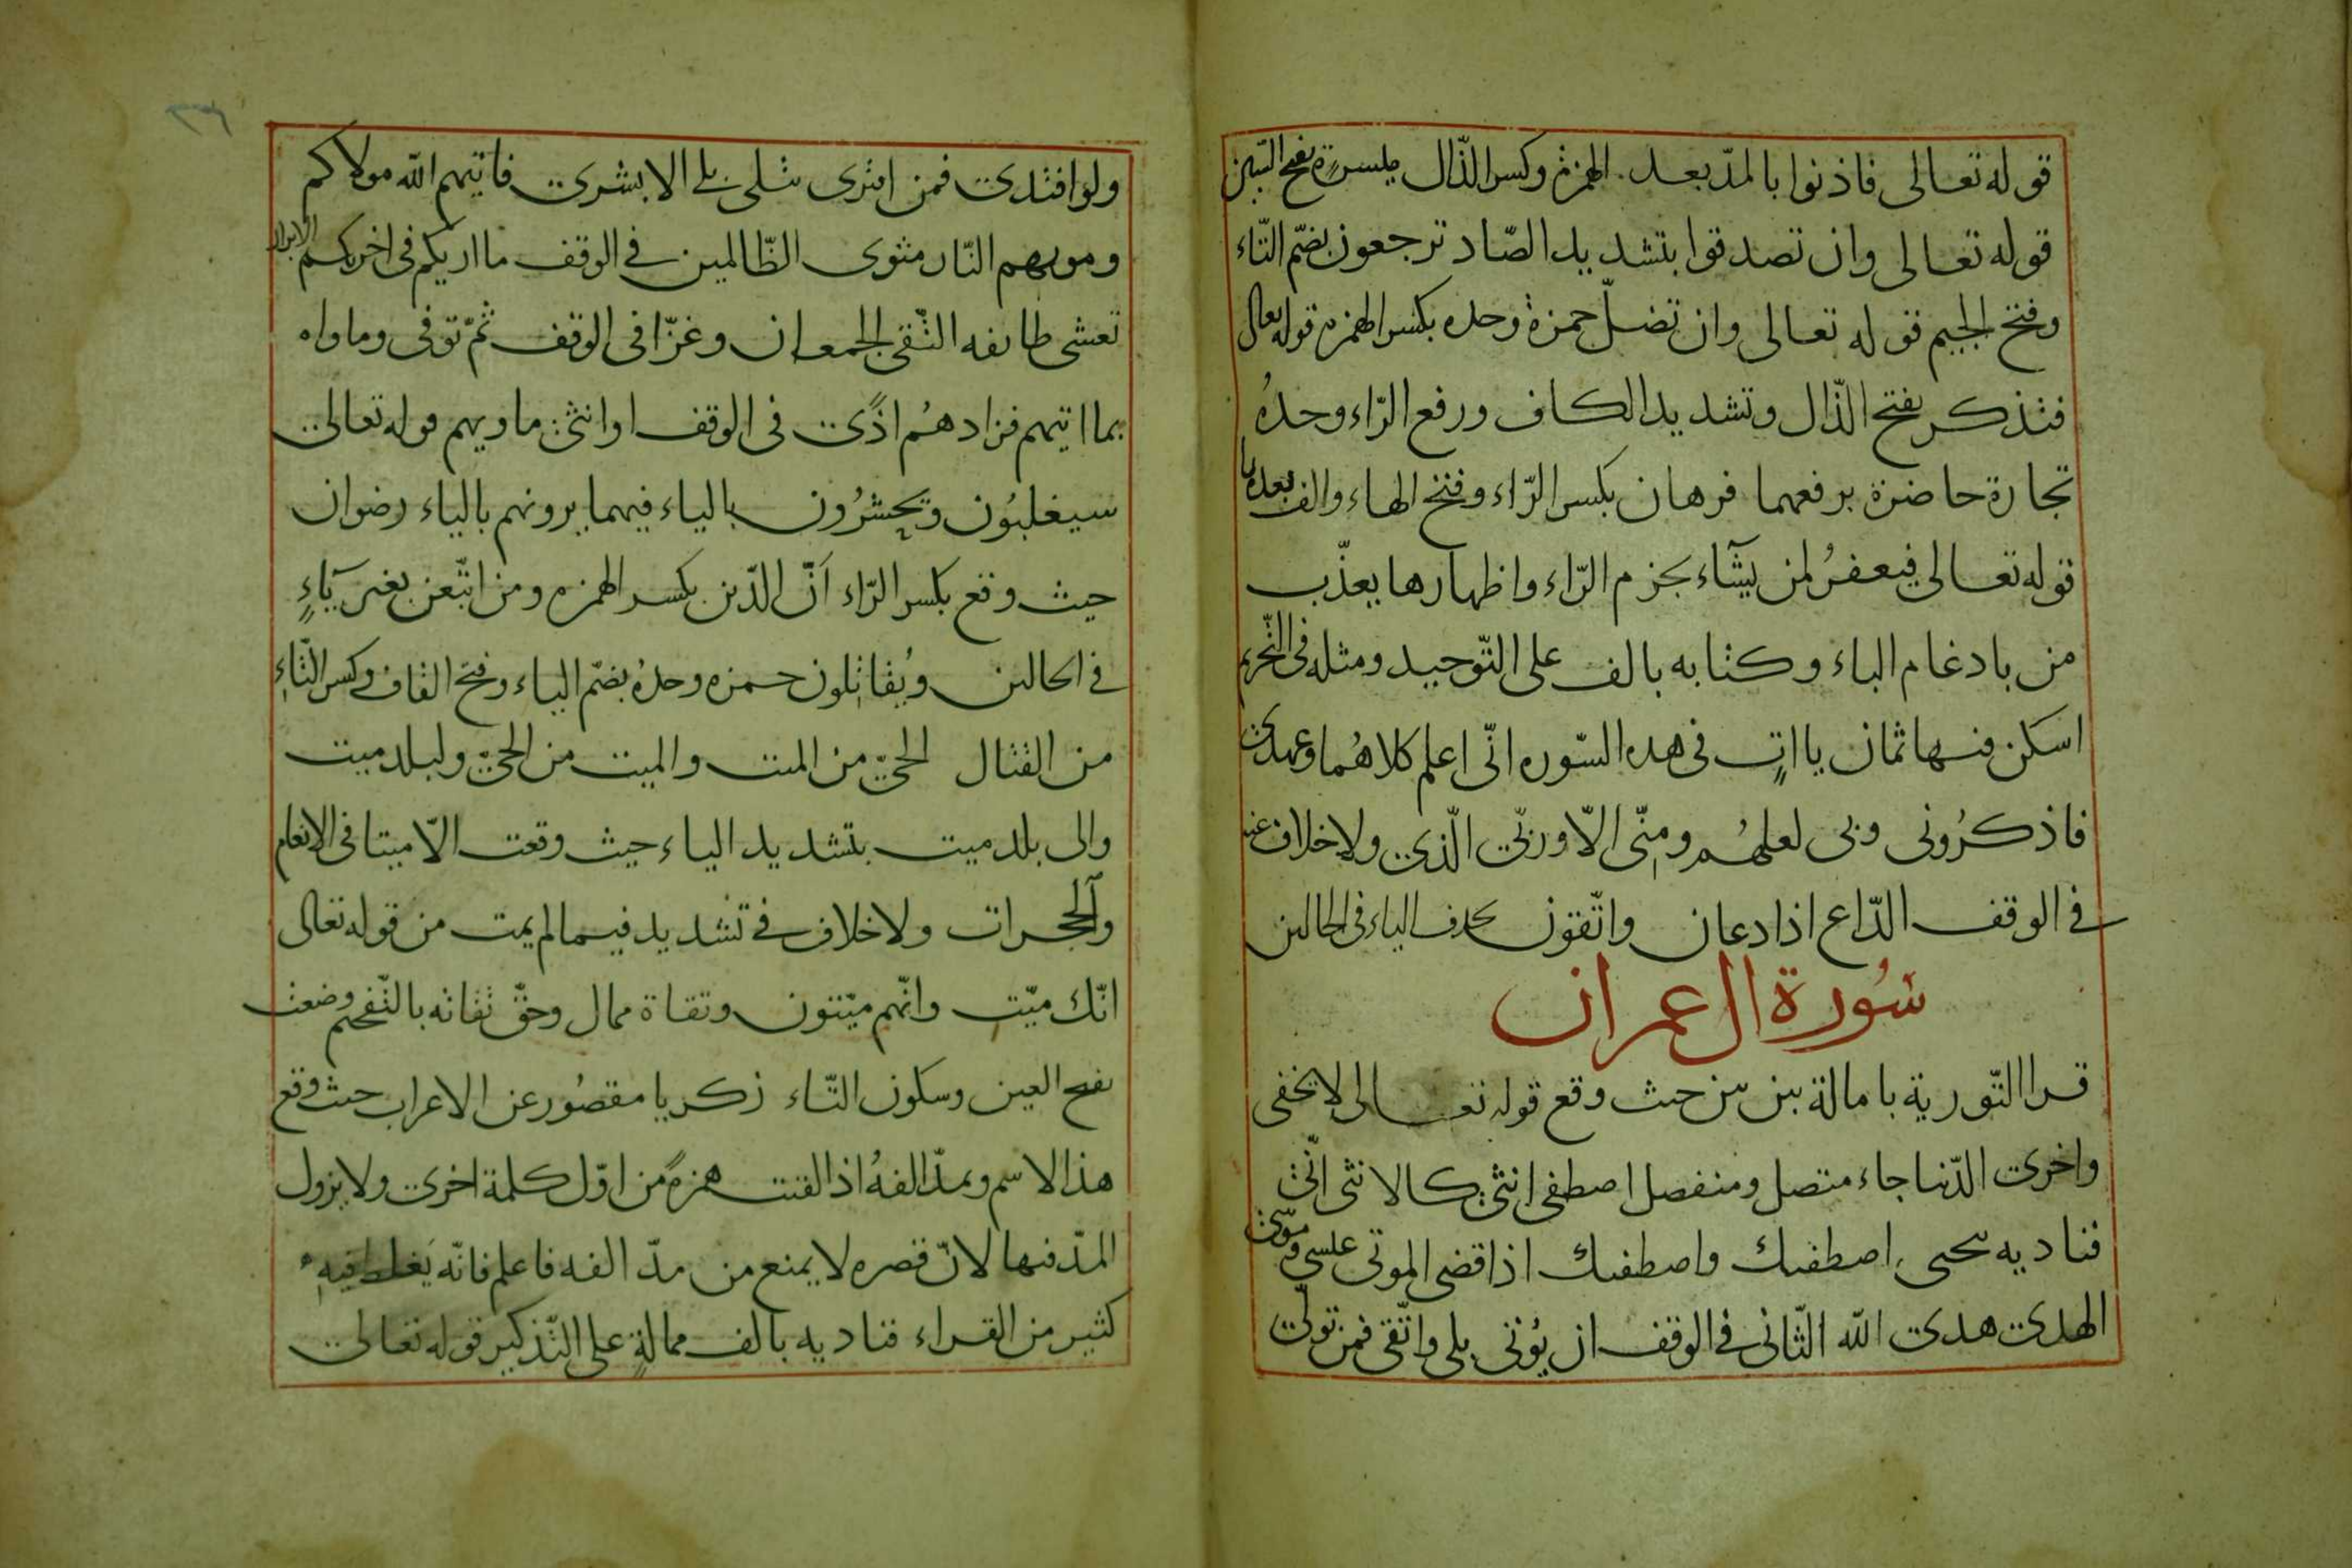 قوله تعالى فاذنوا بالمدّ بعد الهمزة وكسر الذّال ميسرة بفتح السّين
قوله تعالى وان تصدقوا بتشديد الصّاد ترجعون بضمّ التّاء
وفتح الجيم قوله تعالى وان تضلّ حمزة وحده بكسر الهمزه قوله تعالى
فتذكر بفتح الذّال وتشديد الكاف ورفع الرّاء وحدهُ
تجارة حاضرة برفعهما فرهان بكسر الرّاء وفتح الهاء والف بعدها
قوله تعالى فيغفرُ لمن يشآء بجزم الرّاء واظهارها يعذّب
من بادغام الباء وكتابه بالف على التّوحيد ومثله فى التّحريم
اسكن فيها ثمان يااتٍ فى هذه السّوره انّى اعلم كلاهُما وعهدى
فاذكرُونى وبى لعلهُم ومنّى الّا وربّى الّذى ولا خلاف عنه
فى الوقف الدّاع اذا دعان واتّقون بحذف الياء فى الحالين
سُورة ال عمران
قرا التّورية بامالة بين بين حيث وقع قوله تعالى لا يخفى
واخرى الدّنيا جاء متصل ومنفصل اصطفى انثى كالانثى انّى
فناديه يحيى اصطفيك واصطفيك اذا قضى الموتى عيسى وموسى
الهدى هدى الله الثّانى فى الوقف ان يُؤتى بلى واتّقى فمن تولّى
ولو افتدى فمن افترى تتلى بلى الا بشرى فاتيهم الله مولاكم
وماويهم النّار مثوى الظّالمين فى الوقف ما اريكم فى اخريكم الابرار
تغشى طايفه التّقى الجمعان وغزّا فى الوقف ثمّ توفى وماواه
بما اتيهم فزادهُم اذًى فى الوقف او انثى ماويهم قوله تعالى
سيغلبُون ويحشرُون بالياء فيهما يرونهم بالياء رضوان
حيث وقع بكسر الرّاء اَنّ الدّين بكسر الهمزه ومن اتّبعن بغير يآءٍ
فى الحالين ويُقاتلون حمزه وحدهُ بضمّ الياء وفتح القاف وكسر التّاءِ
من القتال الحىّ من الميت والميت من الحىّ ولبلد ميت
والى بلد ميت بتشديد الياء حيث وقعت الّا ميتا فى الانعام
والحجرات ولا خلاف فى تشديد فيما لم يمت من قوله تعالى
انّك ميّت وانّهم ميّتون وتقاة ممال وحقّ تقاته بالتّفخيم وضعت
بفتح العين وسكون التّاء زكريا مقصُور عن الاعراب حيث وقع
هذا الاسم ويمدّ الفهُ اذا لقيت همزةً من اوّل كلمة اخرى ولا يزول
المدّ فيها لانّ قصره لا يمنع من مدّ الفه فاعلم فانّه يَغلط فيهِ
كثير من القراء فناديه بالف ممالةٍ على التّذكير قوله تعالى